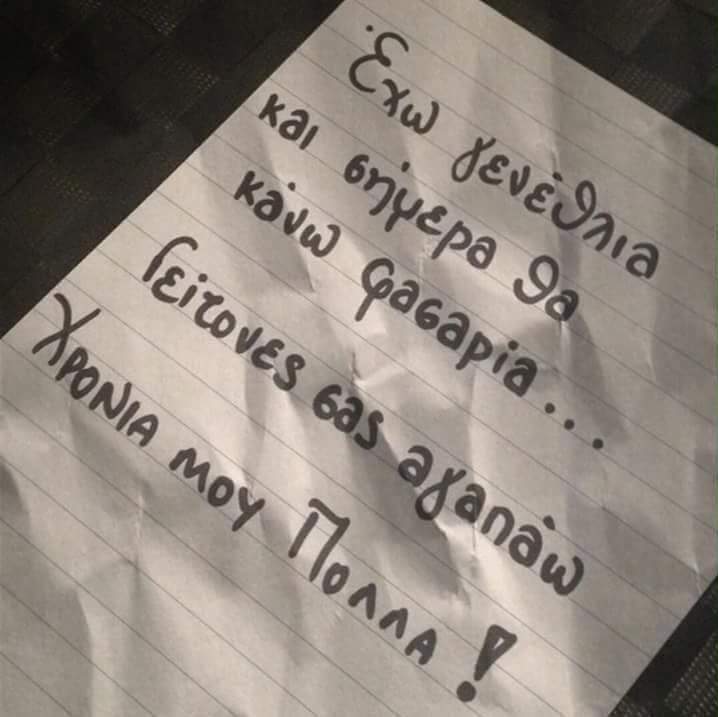 Έχω γενέθλια
και σήμερα θα
κάνω φασαρία...
Γείτονες σας αγαπάω
ΧΡΟΝΙΑ ΜΟΥ ΠΟΛΛΑ!